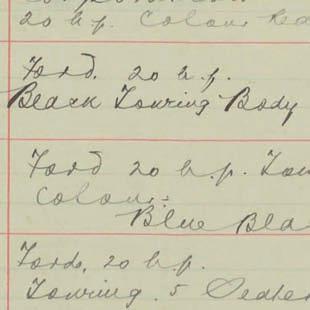 20 h.p. Colour Red
Ford. 20 h.p.
Black Touring Body
Ford 20 h.p. Tou
Colour:
Blue Bla
Ford. 20 h.p.
Touring. 5 Seater